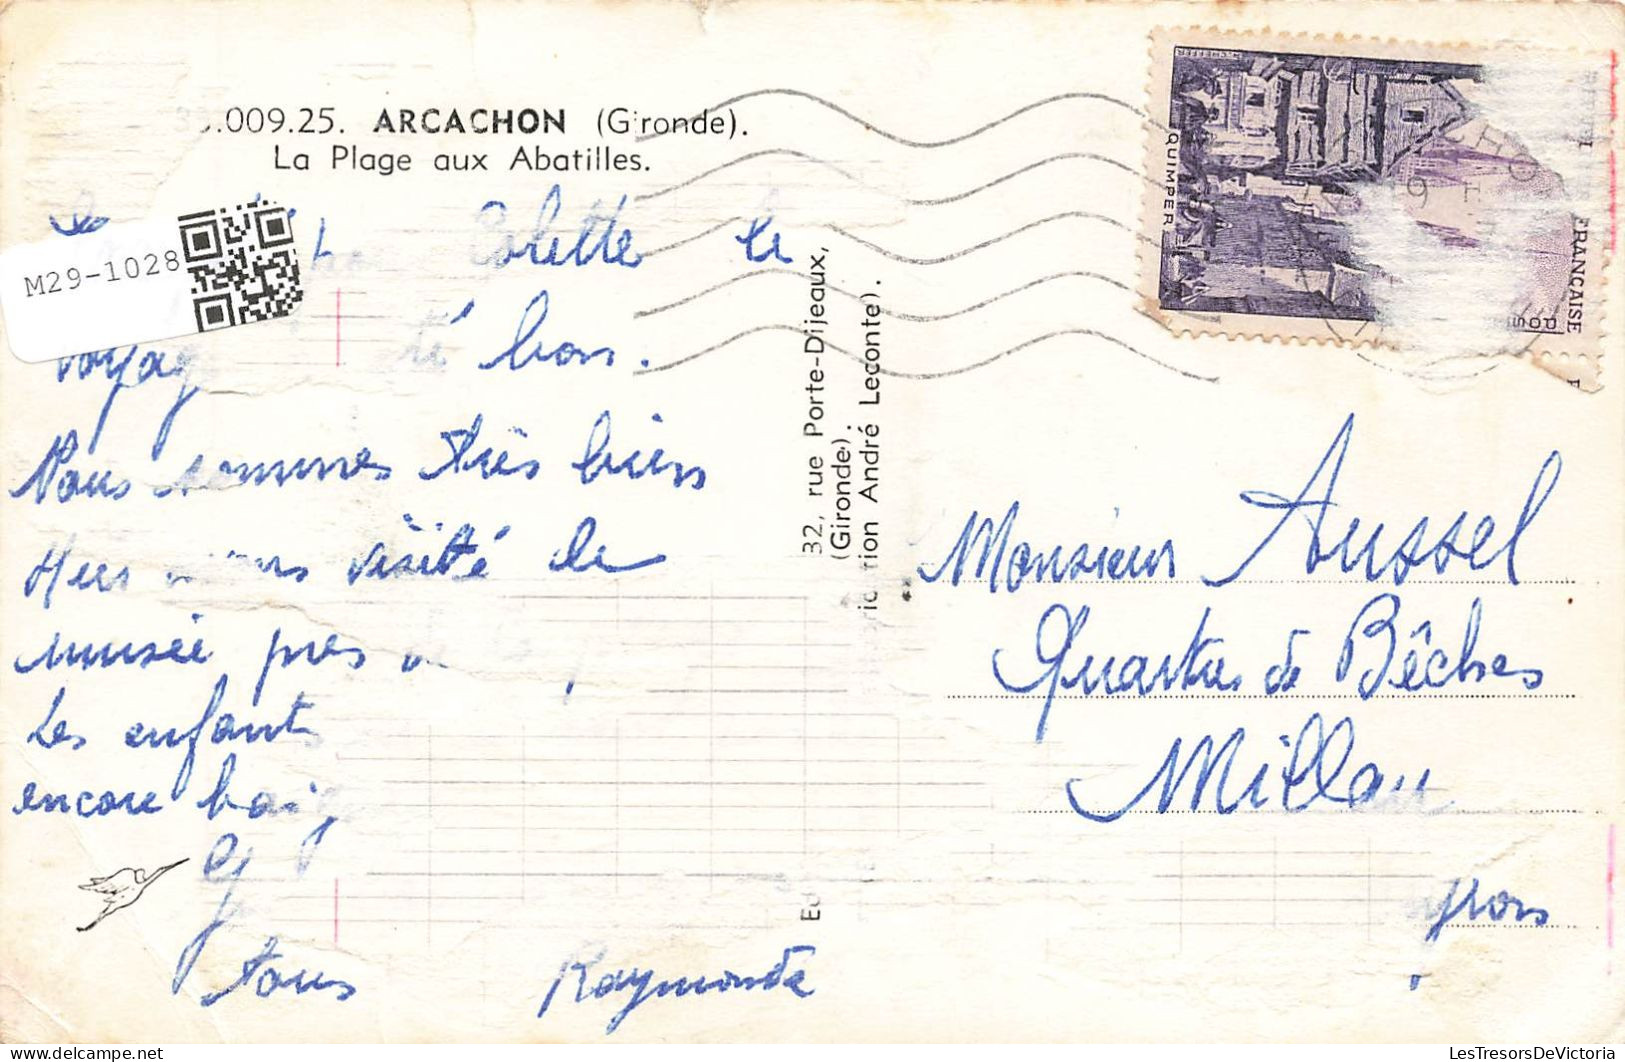 .009.25. ARCACHON (Gironde).
La Plage aux Abatilles.
M29-1028
Colette le
voyag té bon.
Nous sommes très bien
Hier visité le
musée près
Les enfants
encore baig
tous Raymonde
32, rue Porte-Dijeaux,
(Gironde).
André Leconte).
Ed
H. CHEFFER
QUIMPER
FRANÇAISE
POS
Monsieur Aussel
Quartier de Bêches
Millau
yron
LesTresorsDeVictoria